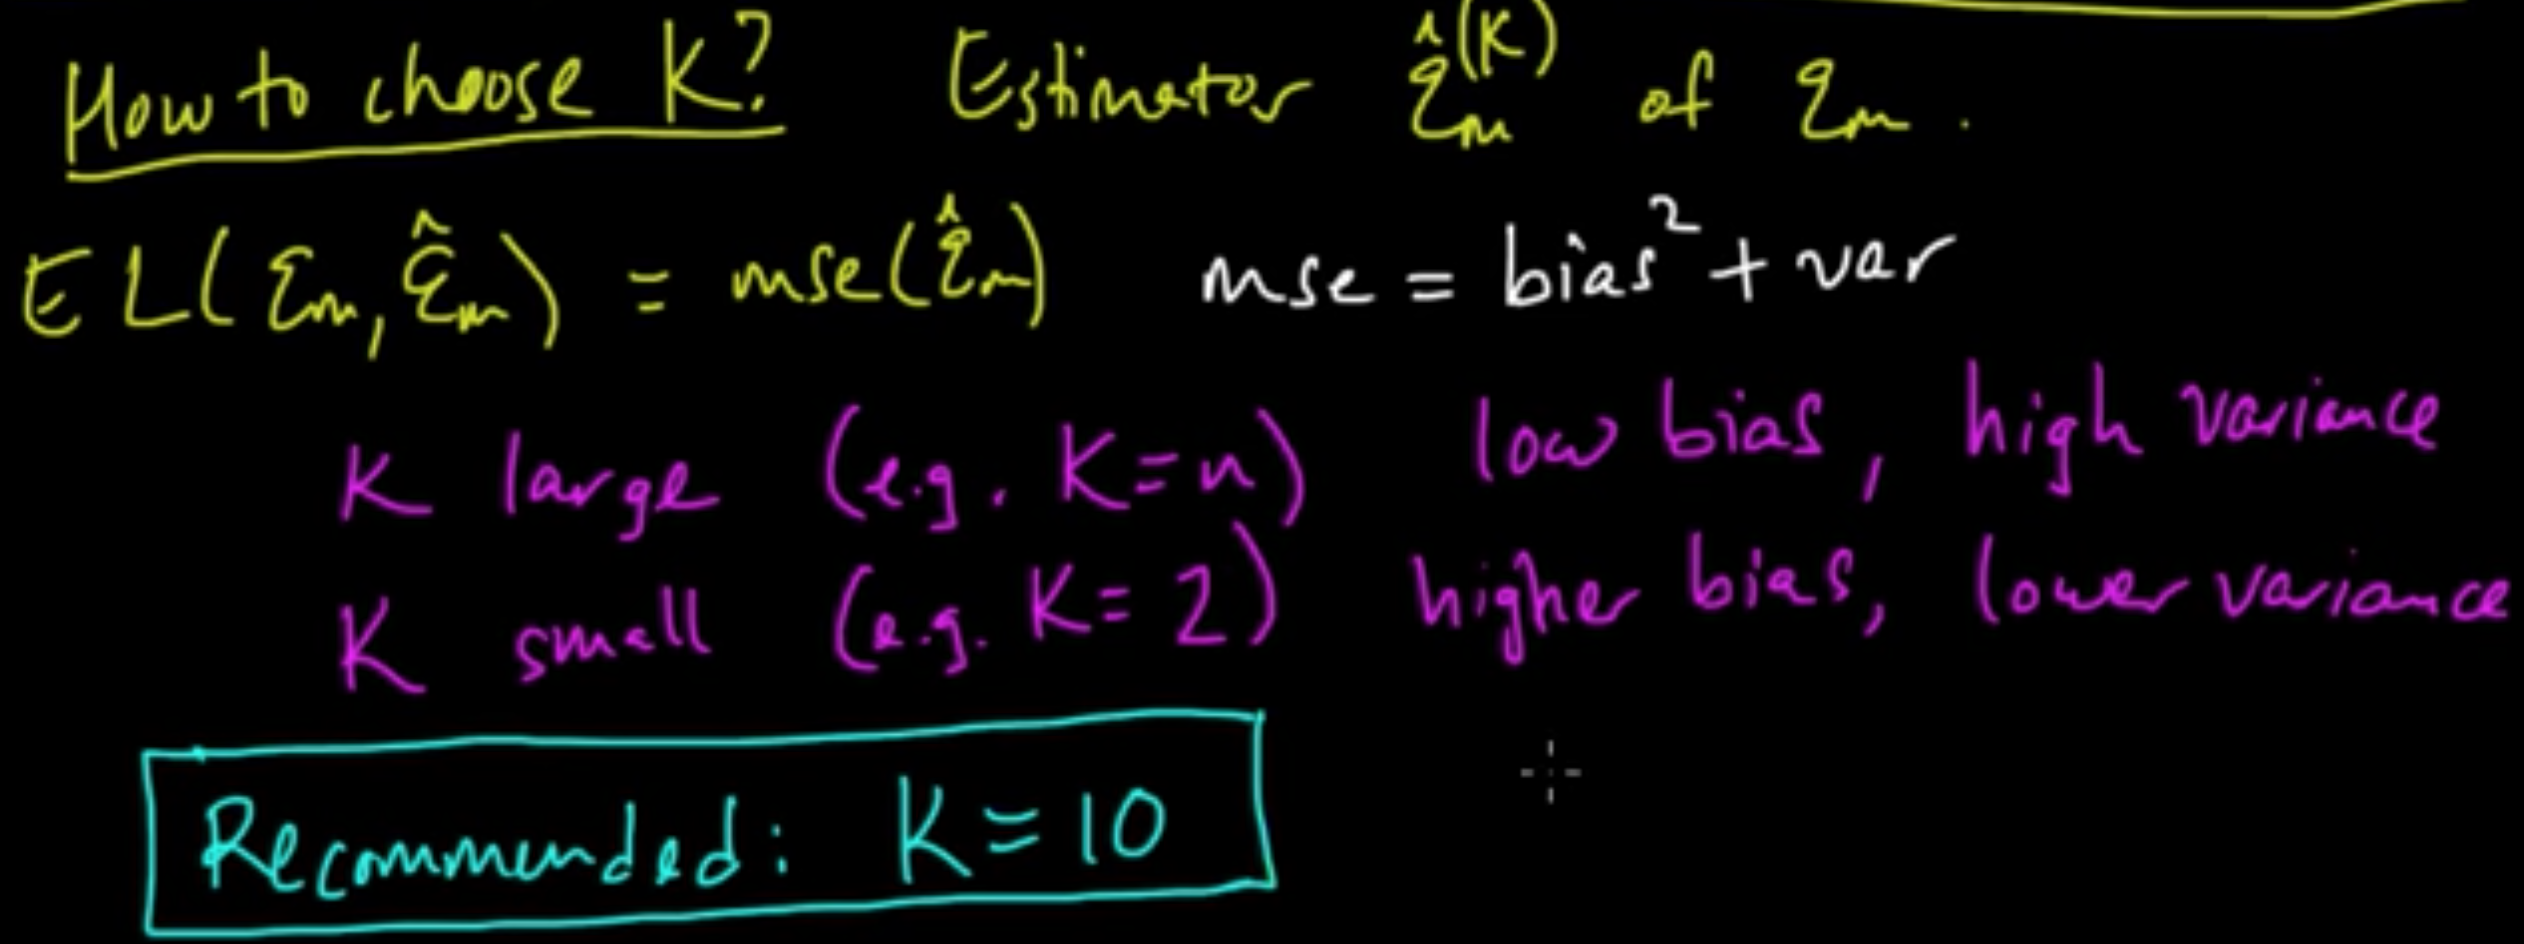 How to choose K? Estimator ε̂ₘ⁽ᴷ⁾ of εₘ.
EL(εₘ, ε̂ₘ) = mse(ε̂ₘ) mse = bias² + var
K large (e.g. K=n) low bias, high variance
K small (e.g. K=2) higher bias, lower variance
Recommended: K=10